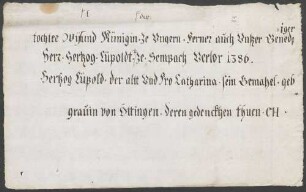 iger
tochter Wÿlund Künigin Ze Vngern. Ferner auch Vnser Gened
Herr Herzog Lüpoldt. Ze Sempach Verlor 1386.
Herzog Lüpold der alt Vnd Fro Catharina sein Gemahel. geb
gräuin von Ottingen. deren gedenckhen thuen. CH